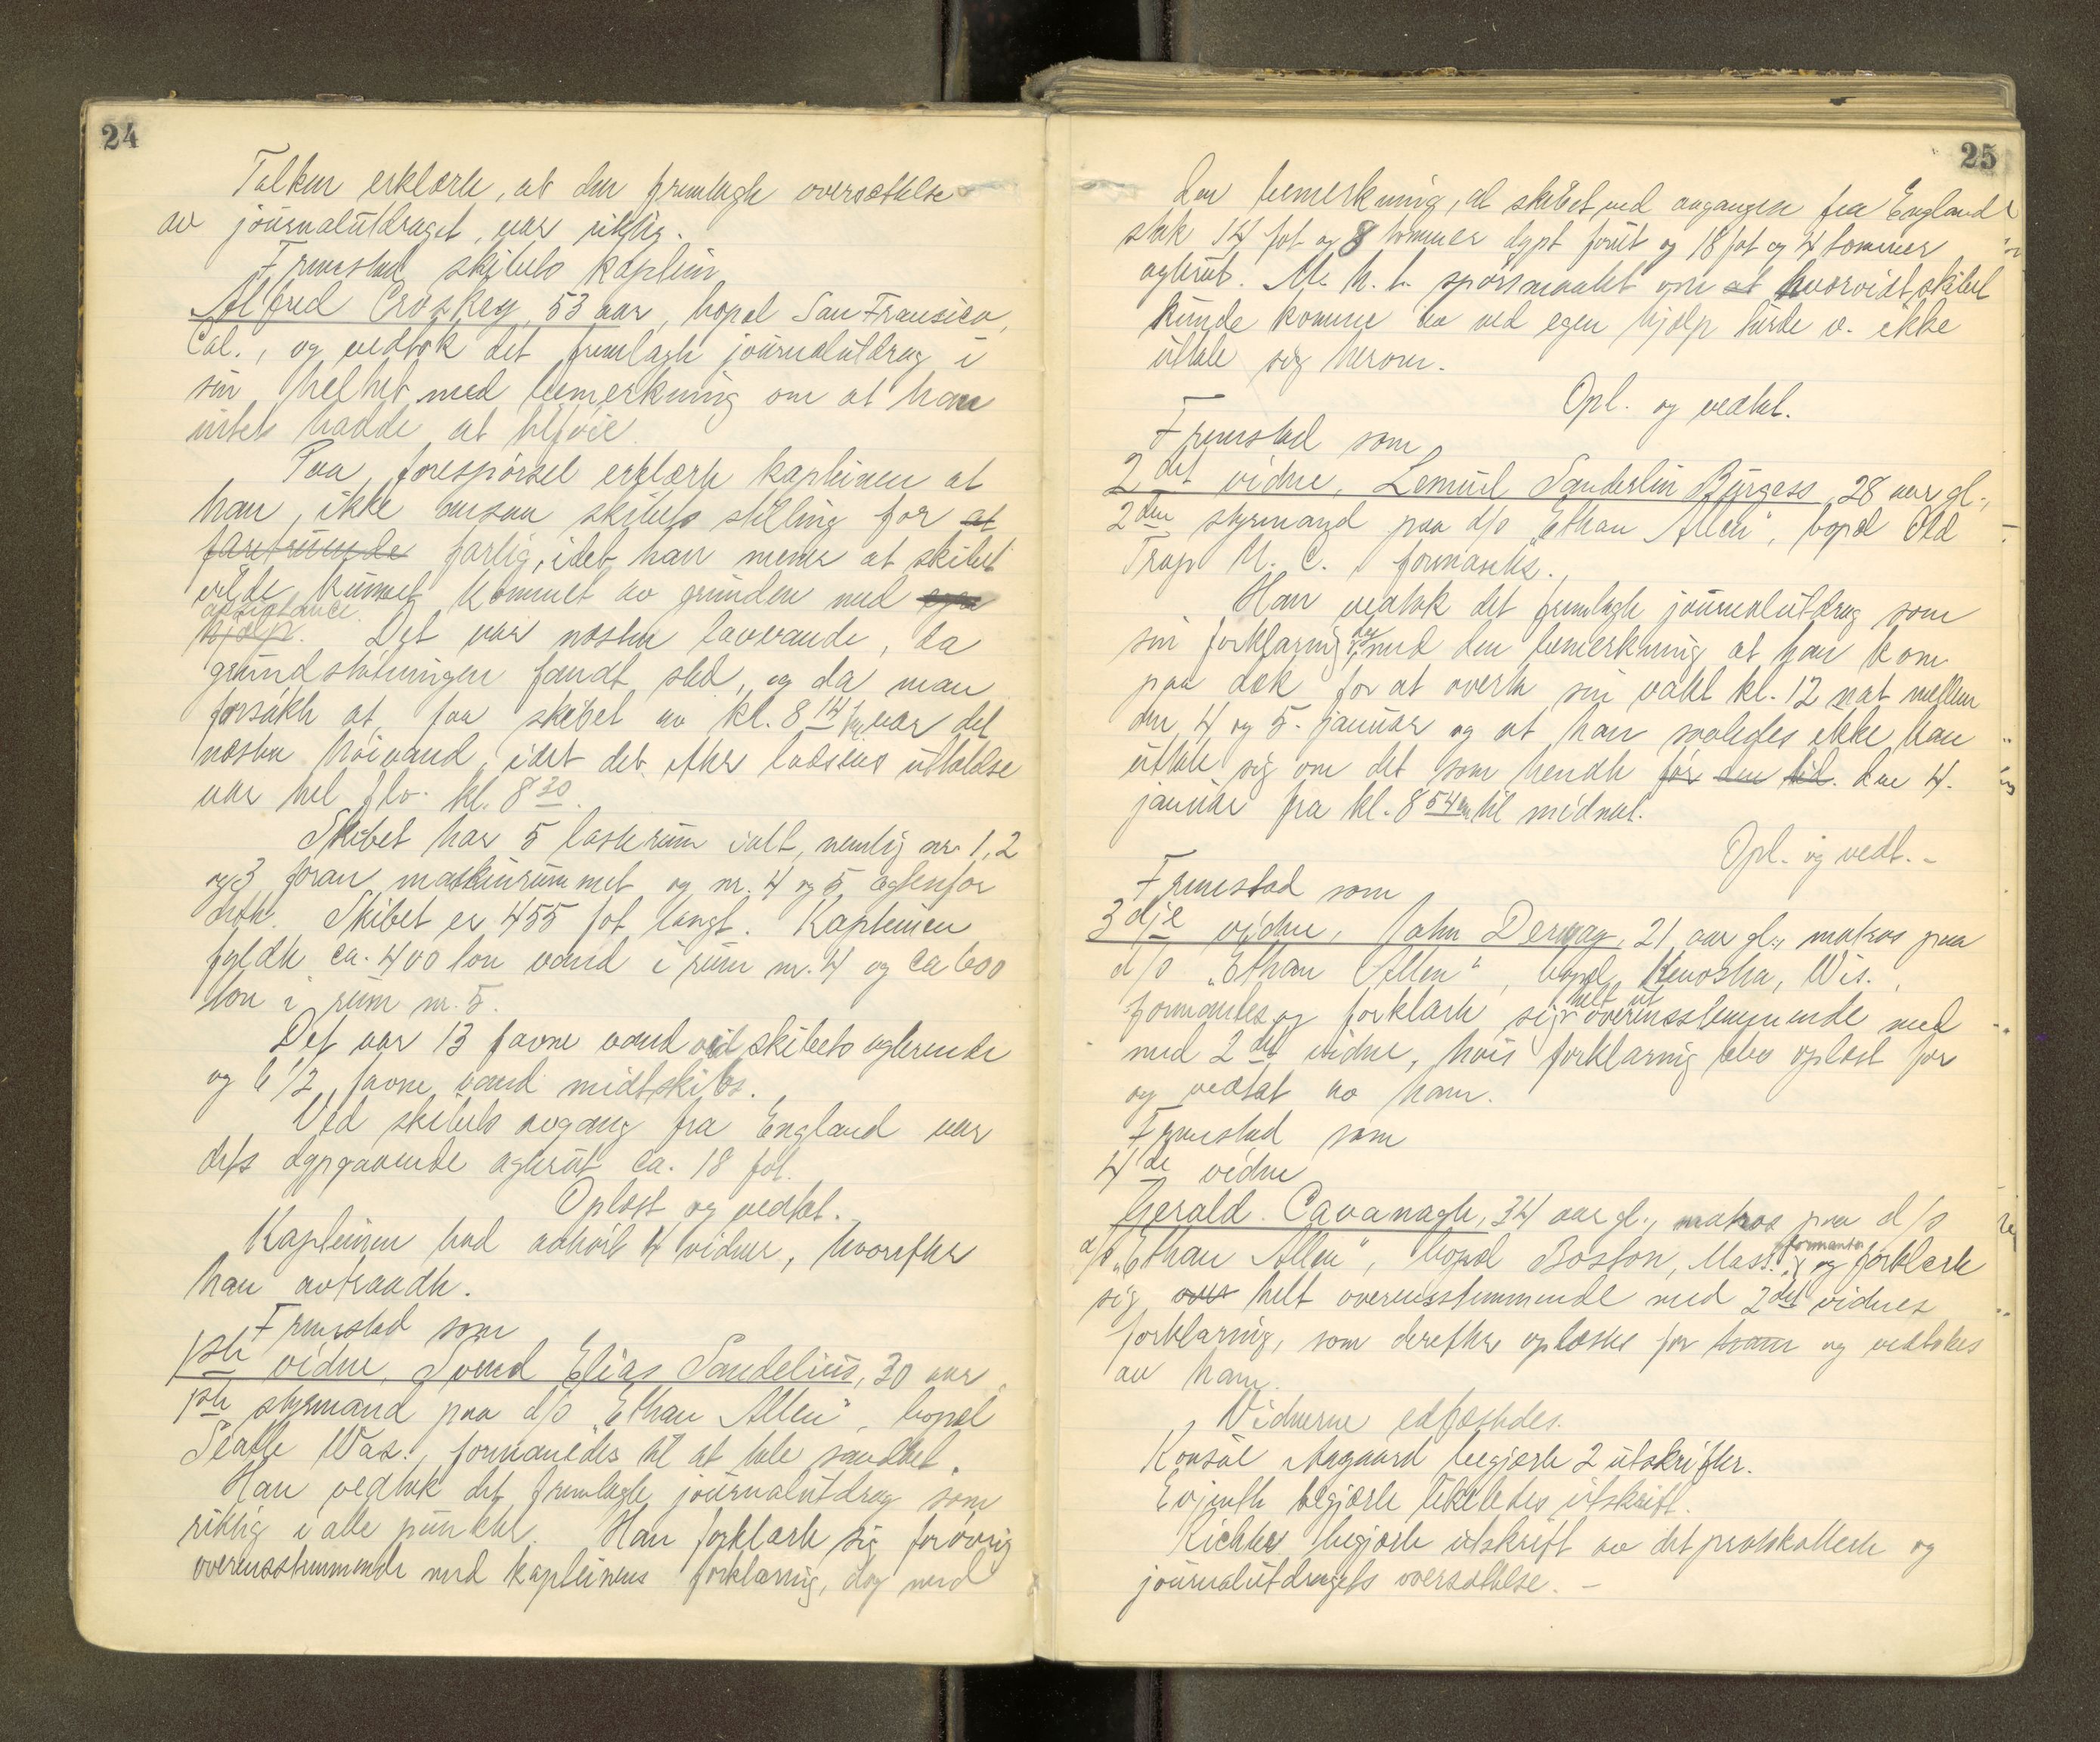 24
Tolken erklærte, at den fremlagte oversættelse
av journalutdraget var riktig.
Fremstod skibets kaptein
Alfred Croskey, 53 aar, bopæl San Fransico,
Cal., og vedtok det fremlagte journalutdrag i
sin helhet med bemerkning om at han
intet hadde at tilføie.
Paa forespørsel erklærte kapteinen at
han ikke ansaa skibets stilling for at
faretruende farlig, idet han mener at skibet
vilde kunnet kommet av grunden med egen
assistance
hjælp. Det var næsten lavvande, da
grundstøtningen fandt sted, og da man
forsøkte at faa skibet av kl. 8 14 fm var det
næsten høivand, idet det efter lodsens uttalelse
var hel flo kl. 8 30.
Skibet har 5 lasterum ialt, nemlig nr. 1, 2
og 3 foran maskinrummet og nr. 4 og 5 agtenfor
dette. Skibet er 455 fot langt. Kapteinen
fyldte ca. 400 ton vand i rum nr. 4 og ca 600
ton i rum nr. 5.
Det var 13 favne vand ved skibets agterende
og 6 1/2 favne vand midtskibs.
Ved skibets avgang fra England var
dets dypgaaende agterut ca. 18 fot.
Oplæst og vedtat.
Kapteinen bad avhørt 4 vidner, hvorefter
han avtraadte.
Fremstod som
1ste vidne, Svend Elias Sandelius, 30 aar
1ste styrmand paa d/s "Ethan Allen", bopæl
Seatle Was., formanedes til at tale sandhet.
Han vedtok det fremlagte journalutdrag som
riktig i alle punkter. Han forklarte sig forøvrig
overensstemmende med kapteinens forklaring, dog med
25
den bemerkning, at skibet ved avgangen fra England
stak 14 fot og 8 tommer dypt forut og 18 fot og 4 tommer
agterut. M. h. t. spørsmaalet om at hvorvidt skibet
kunde komme av ved egen hjælp turde v. ikke
uttale sig herom.
Opl. og vedtat.
Fremstod som
2det vidne, Lemuel Sanderlin Burgess, 28 aar gl.,
2den styrmand paa d/s "Ethan Allen", bopæl Old
Trap N. C., formantes.
Han vedtok det fremlagte journalutdrag som
sin forklaring dog med den bemerkning at han kom
paa dæk for at overta sin vakt kl. 12 nat mellem
den 4 og 5. januar og at han saaledes ikke kan
uttale sig om det som hendte før den tid. den 4.
januar fra kl. 8 54 em til midnat.
Opl. og vedt. -
Fremstod som
3dje vidne, John Dermay, 21 aar gl., matros paa
d/s "Ethan Allen", bopæl Kenosha, Wis.,
helt ut
formantes og forklarte sig overensstemmende med
med 2det vidne, hvis forklaring blev oplæst for
og vedtat av ham.
Fremstod som
4de vidne
Gerald Cavanagh, 34 aar gl., matros paa d/s
formantes
d/s "Ethan Allen", bopæl Boston, Mass., og forklarte
sig over helt overensstemmende med 2det vidnes
forklaring, som derefter oplæstes for ham og vedtokes
av ham.
Vidnerne edfæstedes.
Konsul Aagaard begjærte 2 utskrifter.
Evjenth begjærte likeledes utskrift.
Richter begjærte utskrift av det protokollerte og
journalutdragets oversættelse. -